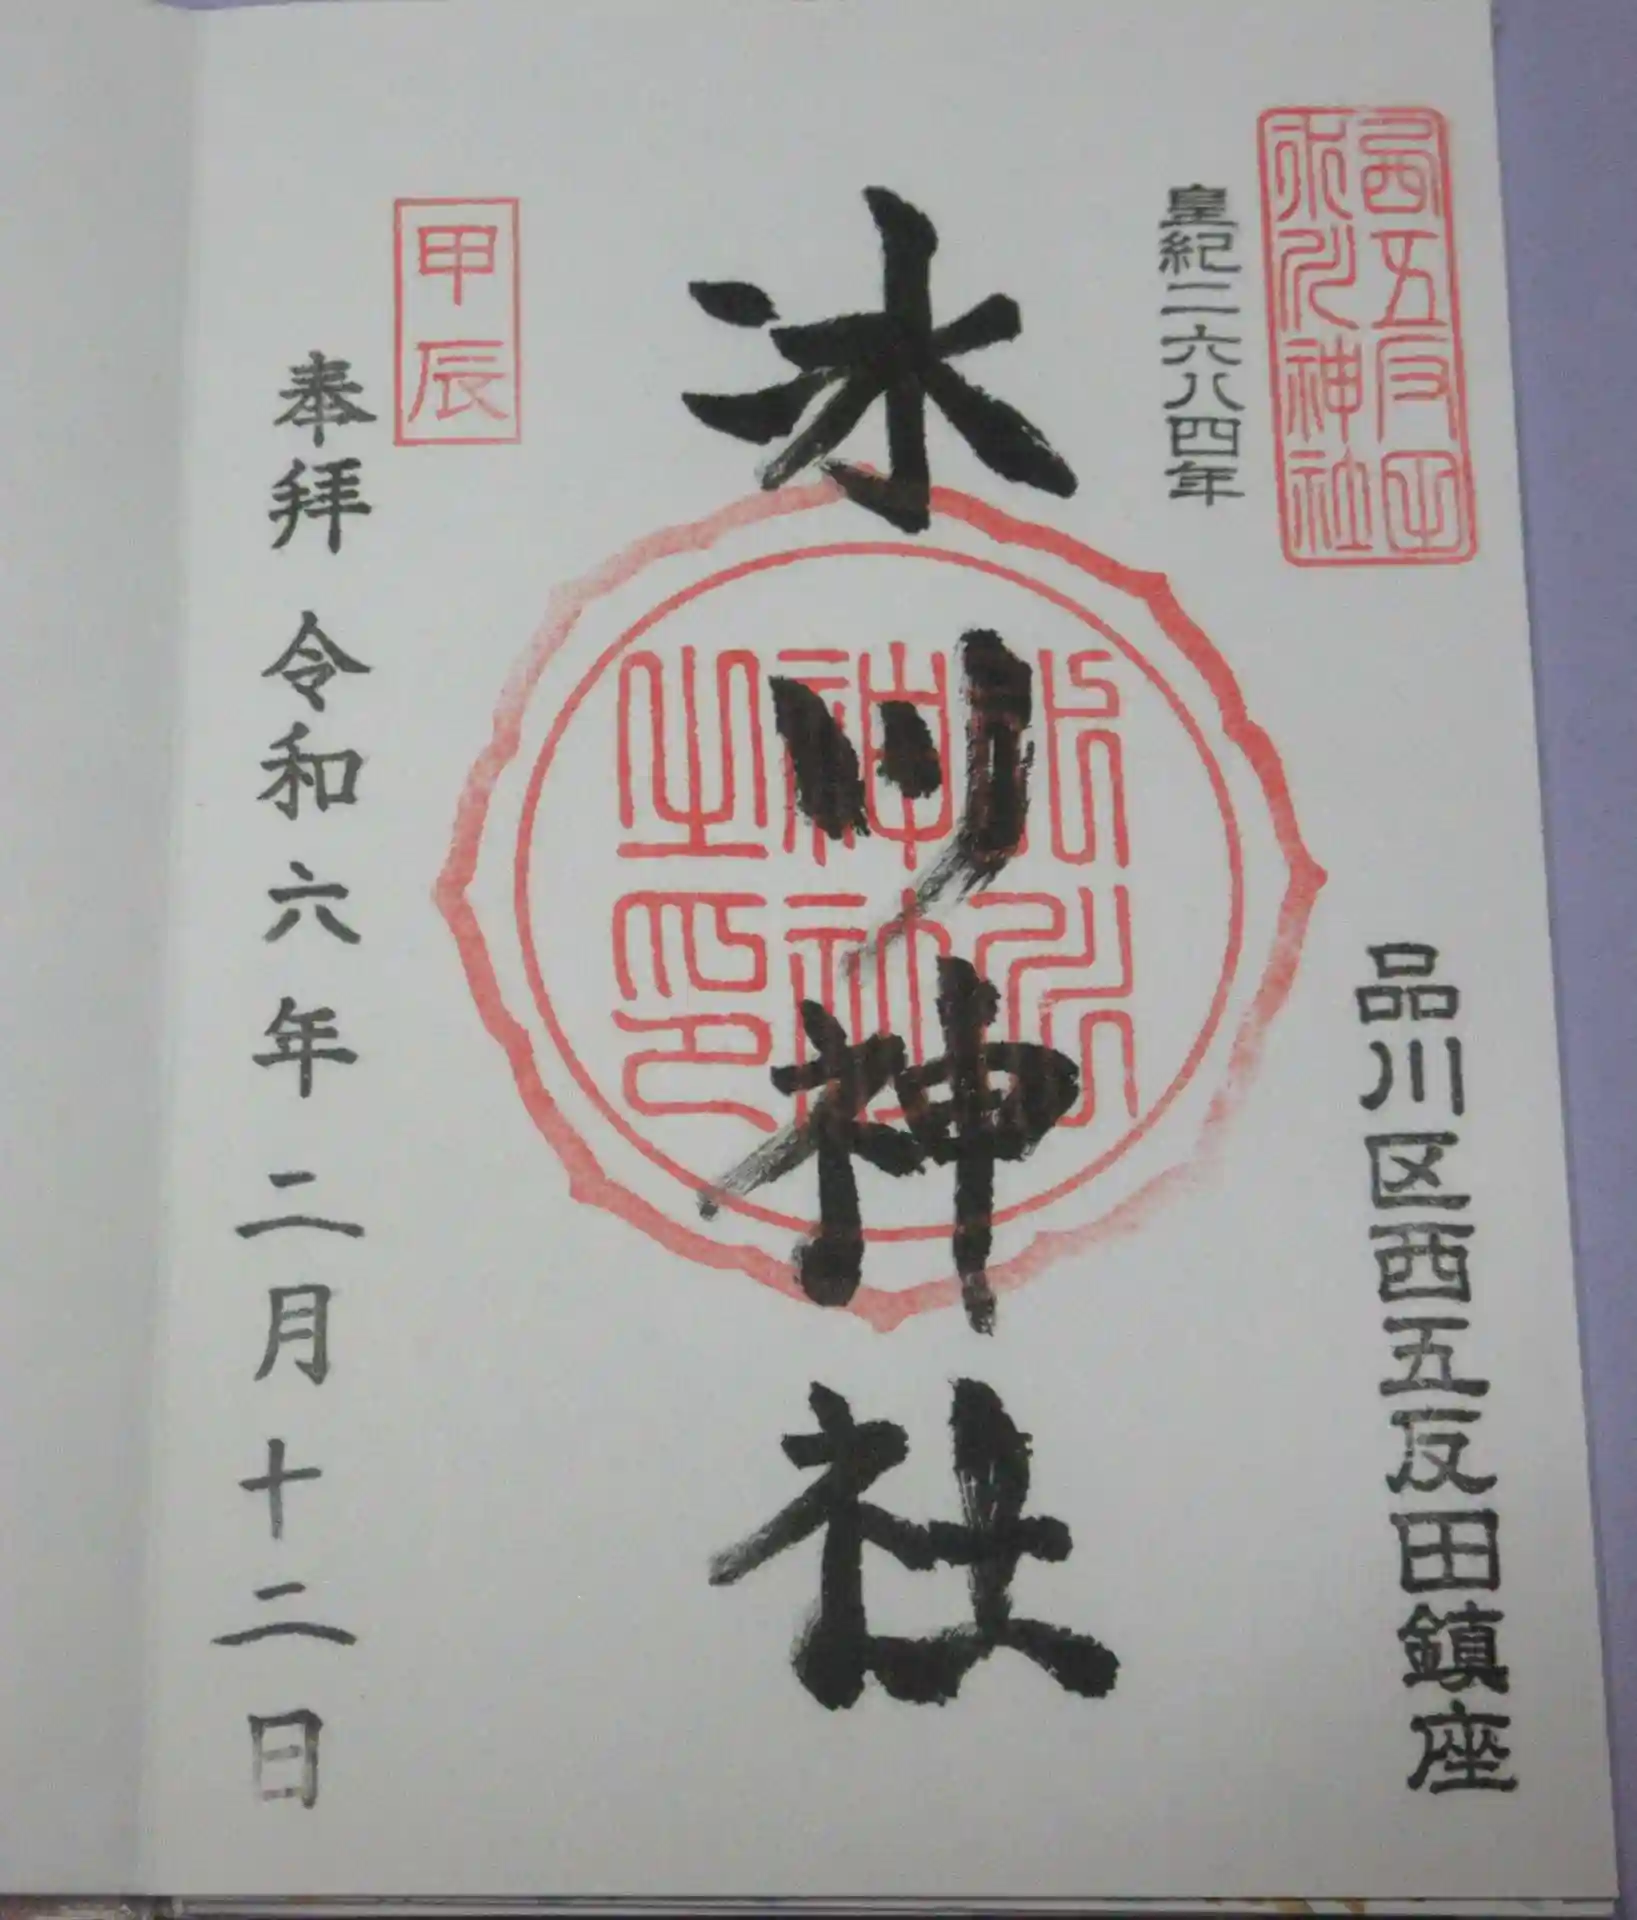 西五反田
氷川神社
皇紀二六八四年
品川区西五反田鎮座
氷川神社
氷川
神社
之印
甲辰
奉拝 令和六年二月十二日